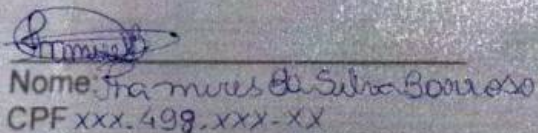 Nome: Framires da Silva Barroso
CPF xxx.499.xxx-xx